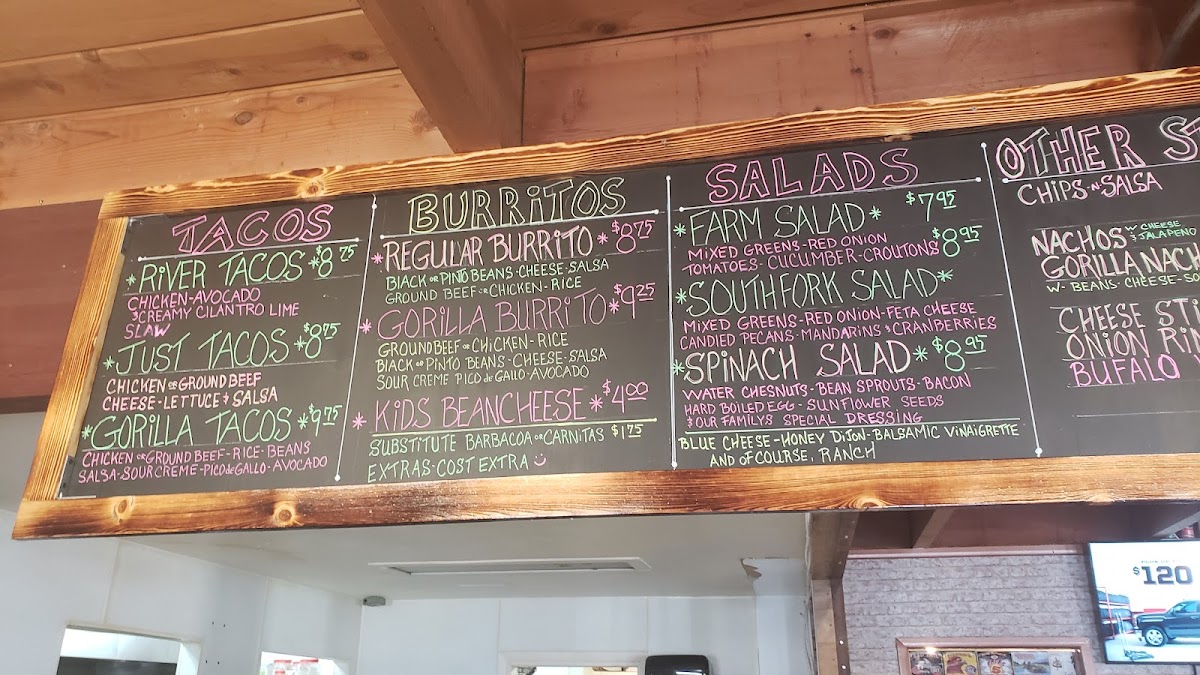 TACOS
*RIVER TACOS*$8.75
CHICKEN-AVOCADO
&CREAMY CILANTRO LIME
SLAW
*JUST TACOS*$8.75
CHICKEN OR GROUND BEEF
CHEESE-LETTUCE & SALSA
*GORILLA TACOS*$9.75
CHICKEN OR GROUND BEEF-RICE-BEANS
SALSA-SOUR CREME-PICO de GALLO-AVOCADO
BURRITOS
*REGULAR BURRITO*$8.75
BLACK OR PINTO BEANS-CHEESE-SALSA
GROUND BEEF OR CHICKEN-RICE
*GORILLA BURRITO*$9.25
GROUND BEEF OR CHICKEN-RICE
BLACK OR PINTO BEANS-CHEESE-SALSA
SOUR CREME PICO de GALLO-AVOCADO
*KIDS BEANCHEESE*$4.00
SUBSTITUTE BARBACOA OR CARNITAS $1.75
EXTRAS-COST EXTRA
SALADS
*FARM SALAD* $7.95
MIXED GREENS-RED ONION
TOMATOES-CUCUMBER-CROUTONS
*SOUTHFORK SALAD* $8.95
MIXED GREENS-RED ONION-FETA CHEESE
CANDIED PECANS-MANDARINS & CRANBERRIES
*SPINACH SALAD*$8.95
WATER CHESNUTS-BEAN SPROUTS-BACON
HARD BOILED EGG-SUNFLOWER SEEDS
& OUR FAMILYS SPECIAL DRESSING
BLUE CHEESE-HONEY DIJON-BALSAMIC VINAIGRETTE
AND OF COURSE, RANCH
OTHER ST
CHIPS-N-SALSA
NACHOS W CHEESE & JALAPENO
GORILLA NACH
W-BEANS-CHEESE-SO
CHEESE STI
ONION RIN
BUFALO
$120